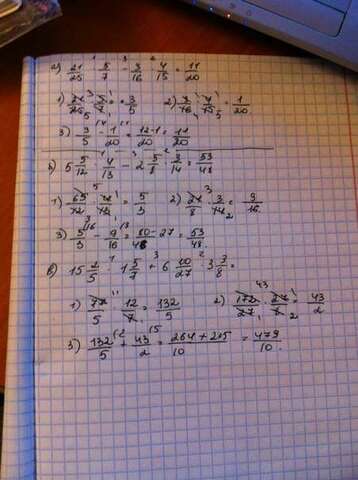 а) 21/25 · 5/7 − 3/16 · 4/15 = 11/20
1) 21/25 · 5/7 = 3/5 2) 3/16 · 4/15 = 1/20
3) 3/5 − 1/20 = 12-1/20 = 11/20
б) 5 5/12 · 4/13 − 2 5/8 · 3/14 = 53/48
1) 65/12 · 4/13 = 5/3 2) 21/8 · 3/14 = 9/16
3) 5/3 − 9/16 = 80-27/48 = 53/48
в) 15 2/5 · 1 5/7 + 6 10/27 · 3 3/8 =
1) 77/5 · 12/7 = 132/5 2) 172/27 · 27/8 = 43/2
3) 132/5 + 43/2 = 264+215/10 = 479/10